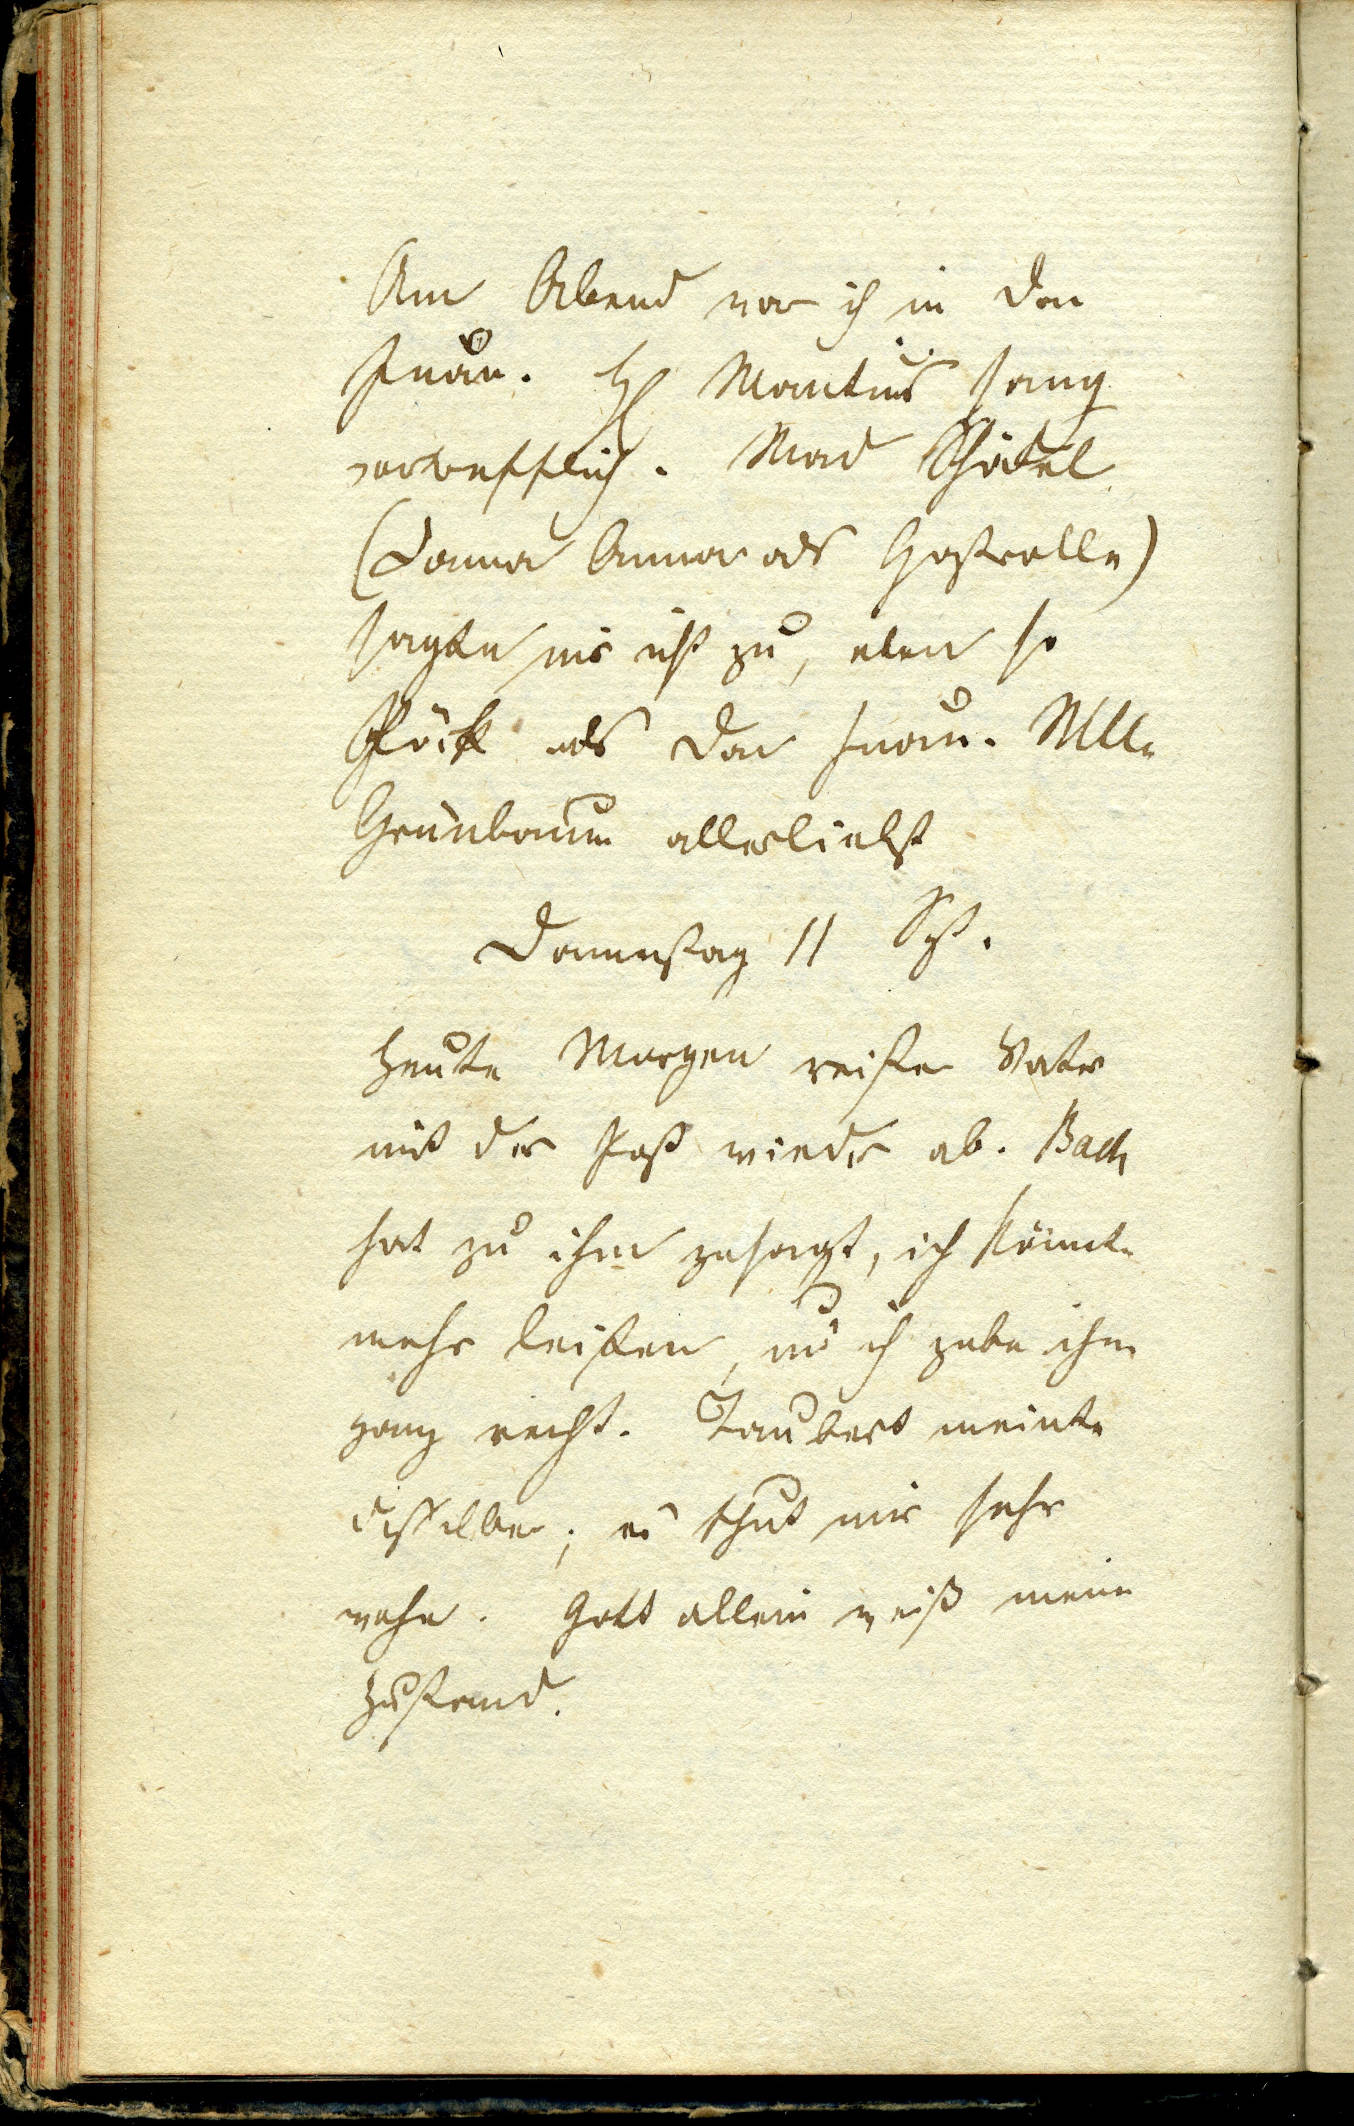 Am Abend war ich in Don
Juan. H Mantius sang
vortrefflich. Mad Schödel
(Donna Anna als Gastrolle)
sagte mir nicht zu, eben so
Pöck als Don Juan. Mlle
Grünbaum allerliebst
Donnerstag 11 Spt.
Heute Morgen reiste Vater
mit der Post wieder ab. Bach
hat zu ihm gesagt, ich könnte
mehr leisten, und ich gebe ihm
ganz recht. Taubert meinte
dasselbe; es thut mir sehr
wehe. Gott allein weiß mein
Zustand.